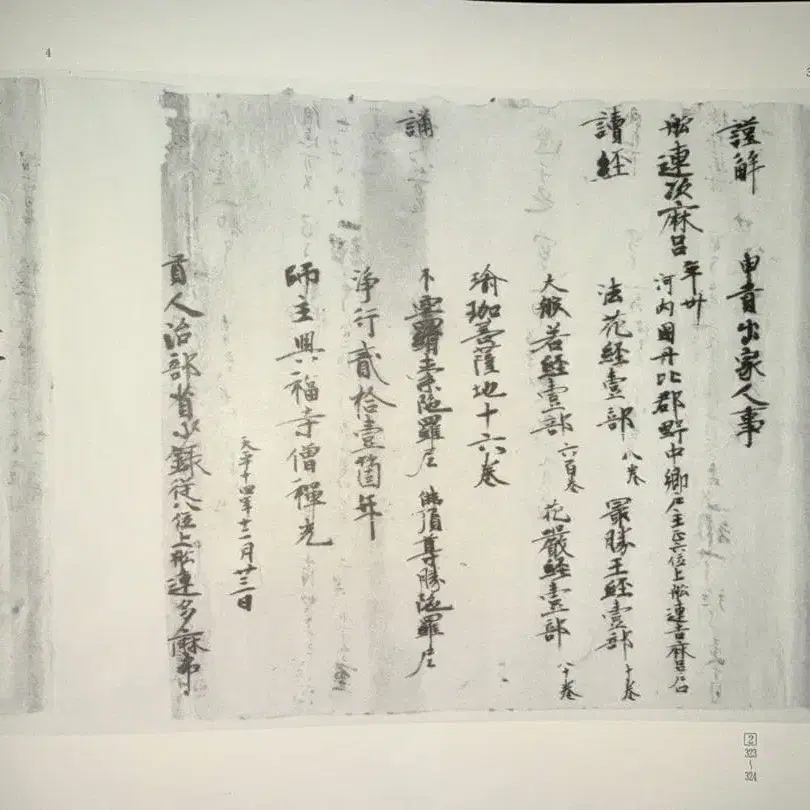 4
謹解 申貢出家人事
舩連次麻呂 年卅 河内國丹比郡野中郷戸主正六位上舩連吉麻呂戸口
讀經 法花經壹部 八巻 最勝王經壹部 十巻
大般若經壹部 六百巻 花嚴經壹部 八十巻
瑜伽菩薩地十六巻
誦 不空羂索陀羅尼 佛頂尊勝陀羅尼
淨行貳拾壹箇年
師主興福寺僧禪光
天平十四年十二月廿三日
貢人治部省少録従八位上舩連多麻布
2 323〜324